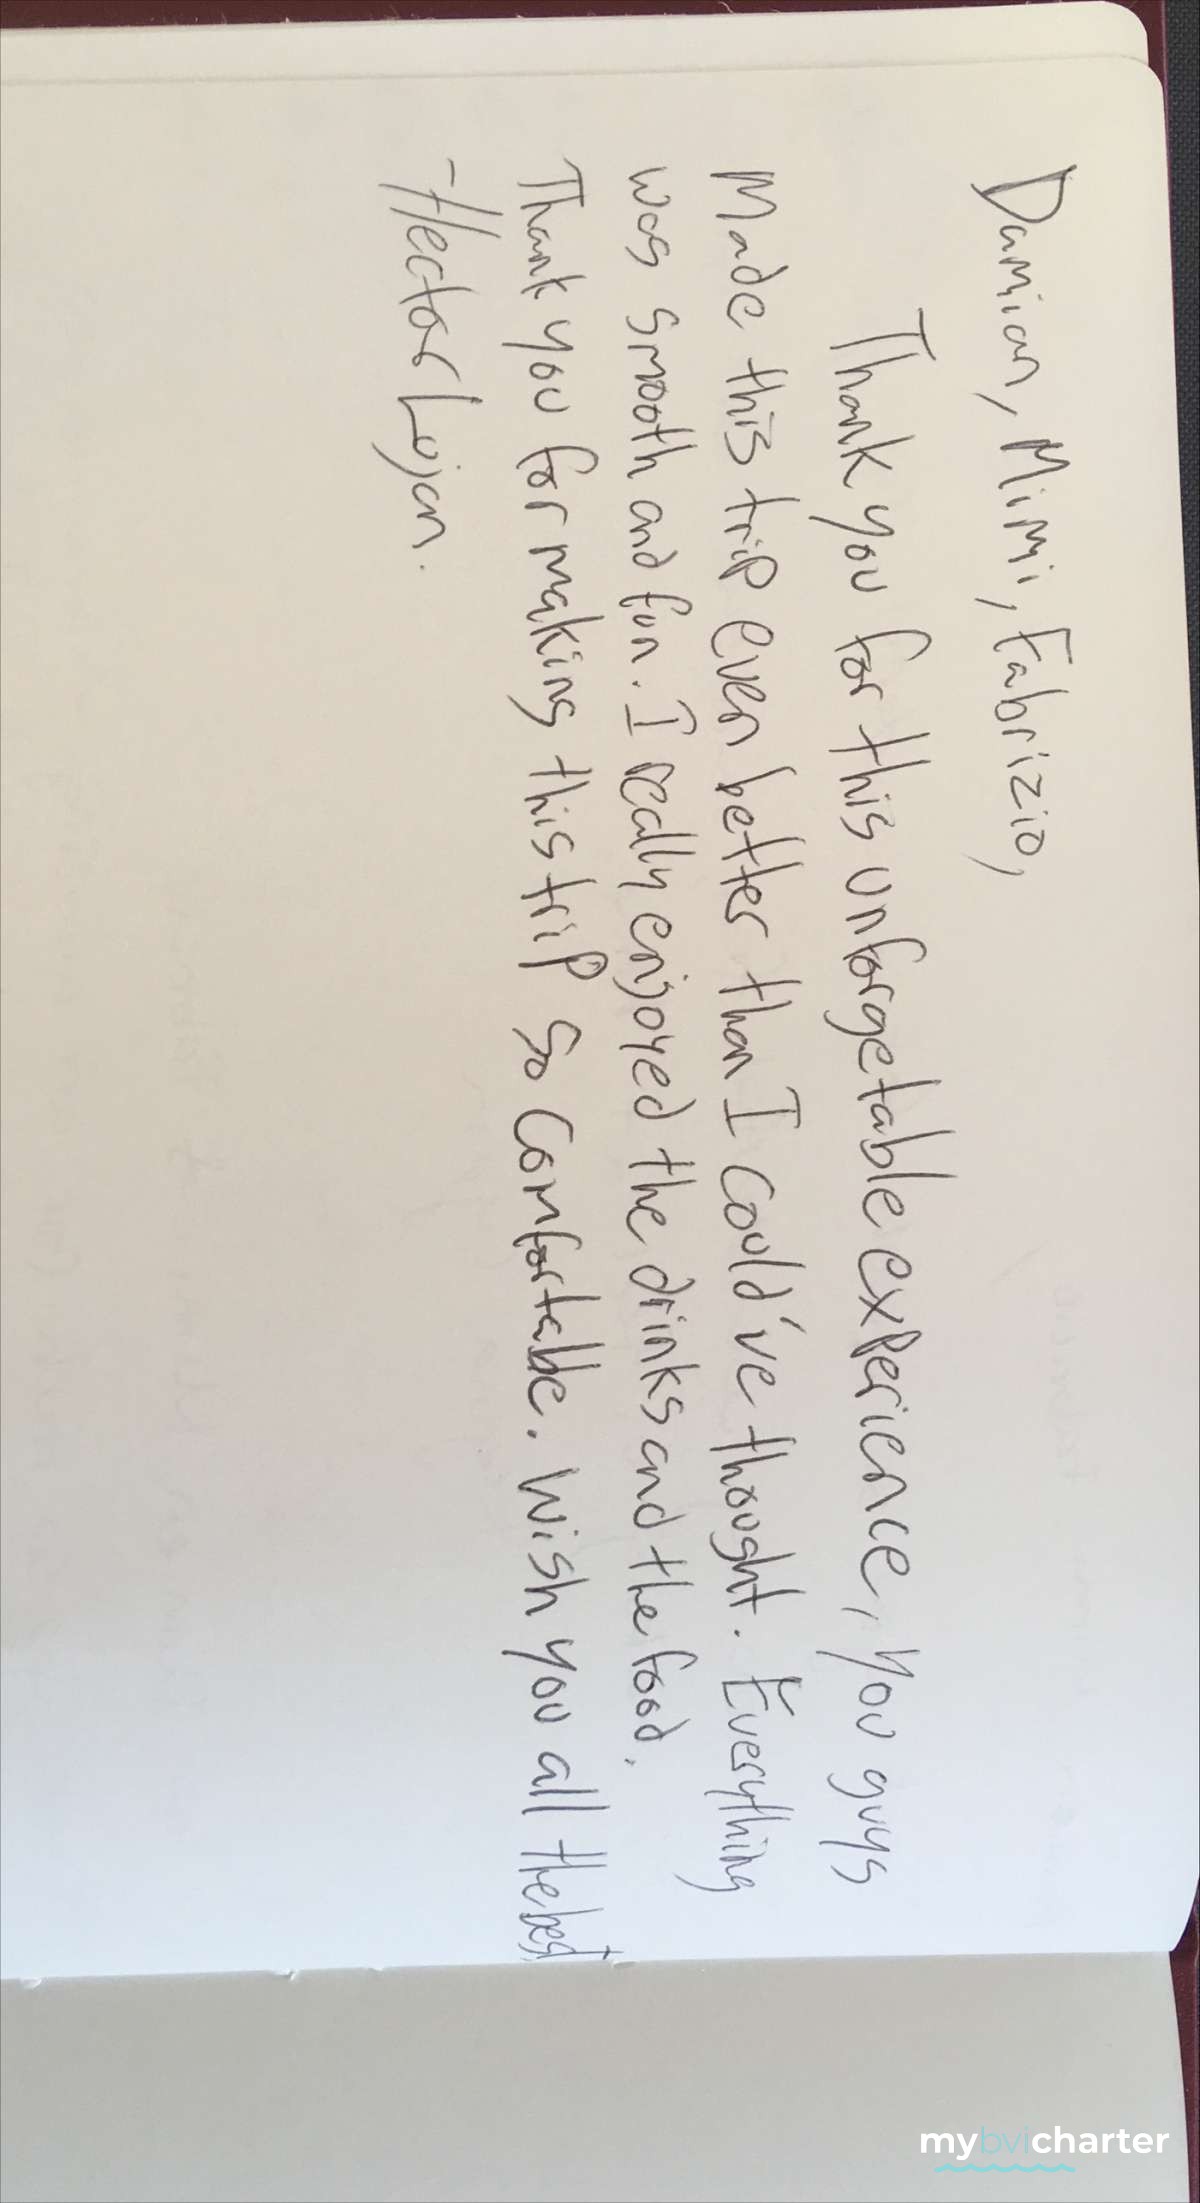 Damian, Mimi, Fabrizio,
Thank you for this unforgetable experience, you guys
Made this trip even better than I could've thought. Everything
was smooth and fun. I really enjoyed the drinks and the food.
Thank you for making this trip so comfortable. Wish you all the best
-Hector Lujan.
mybvicharter